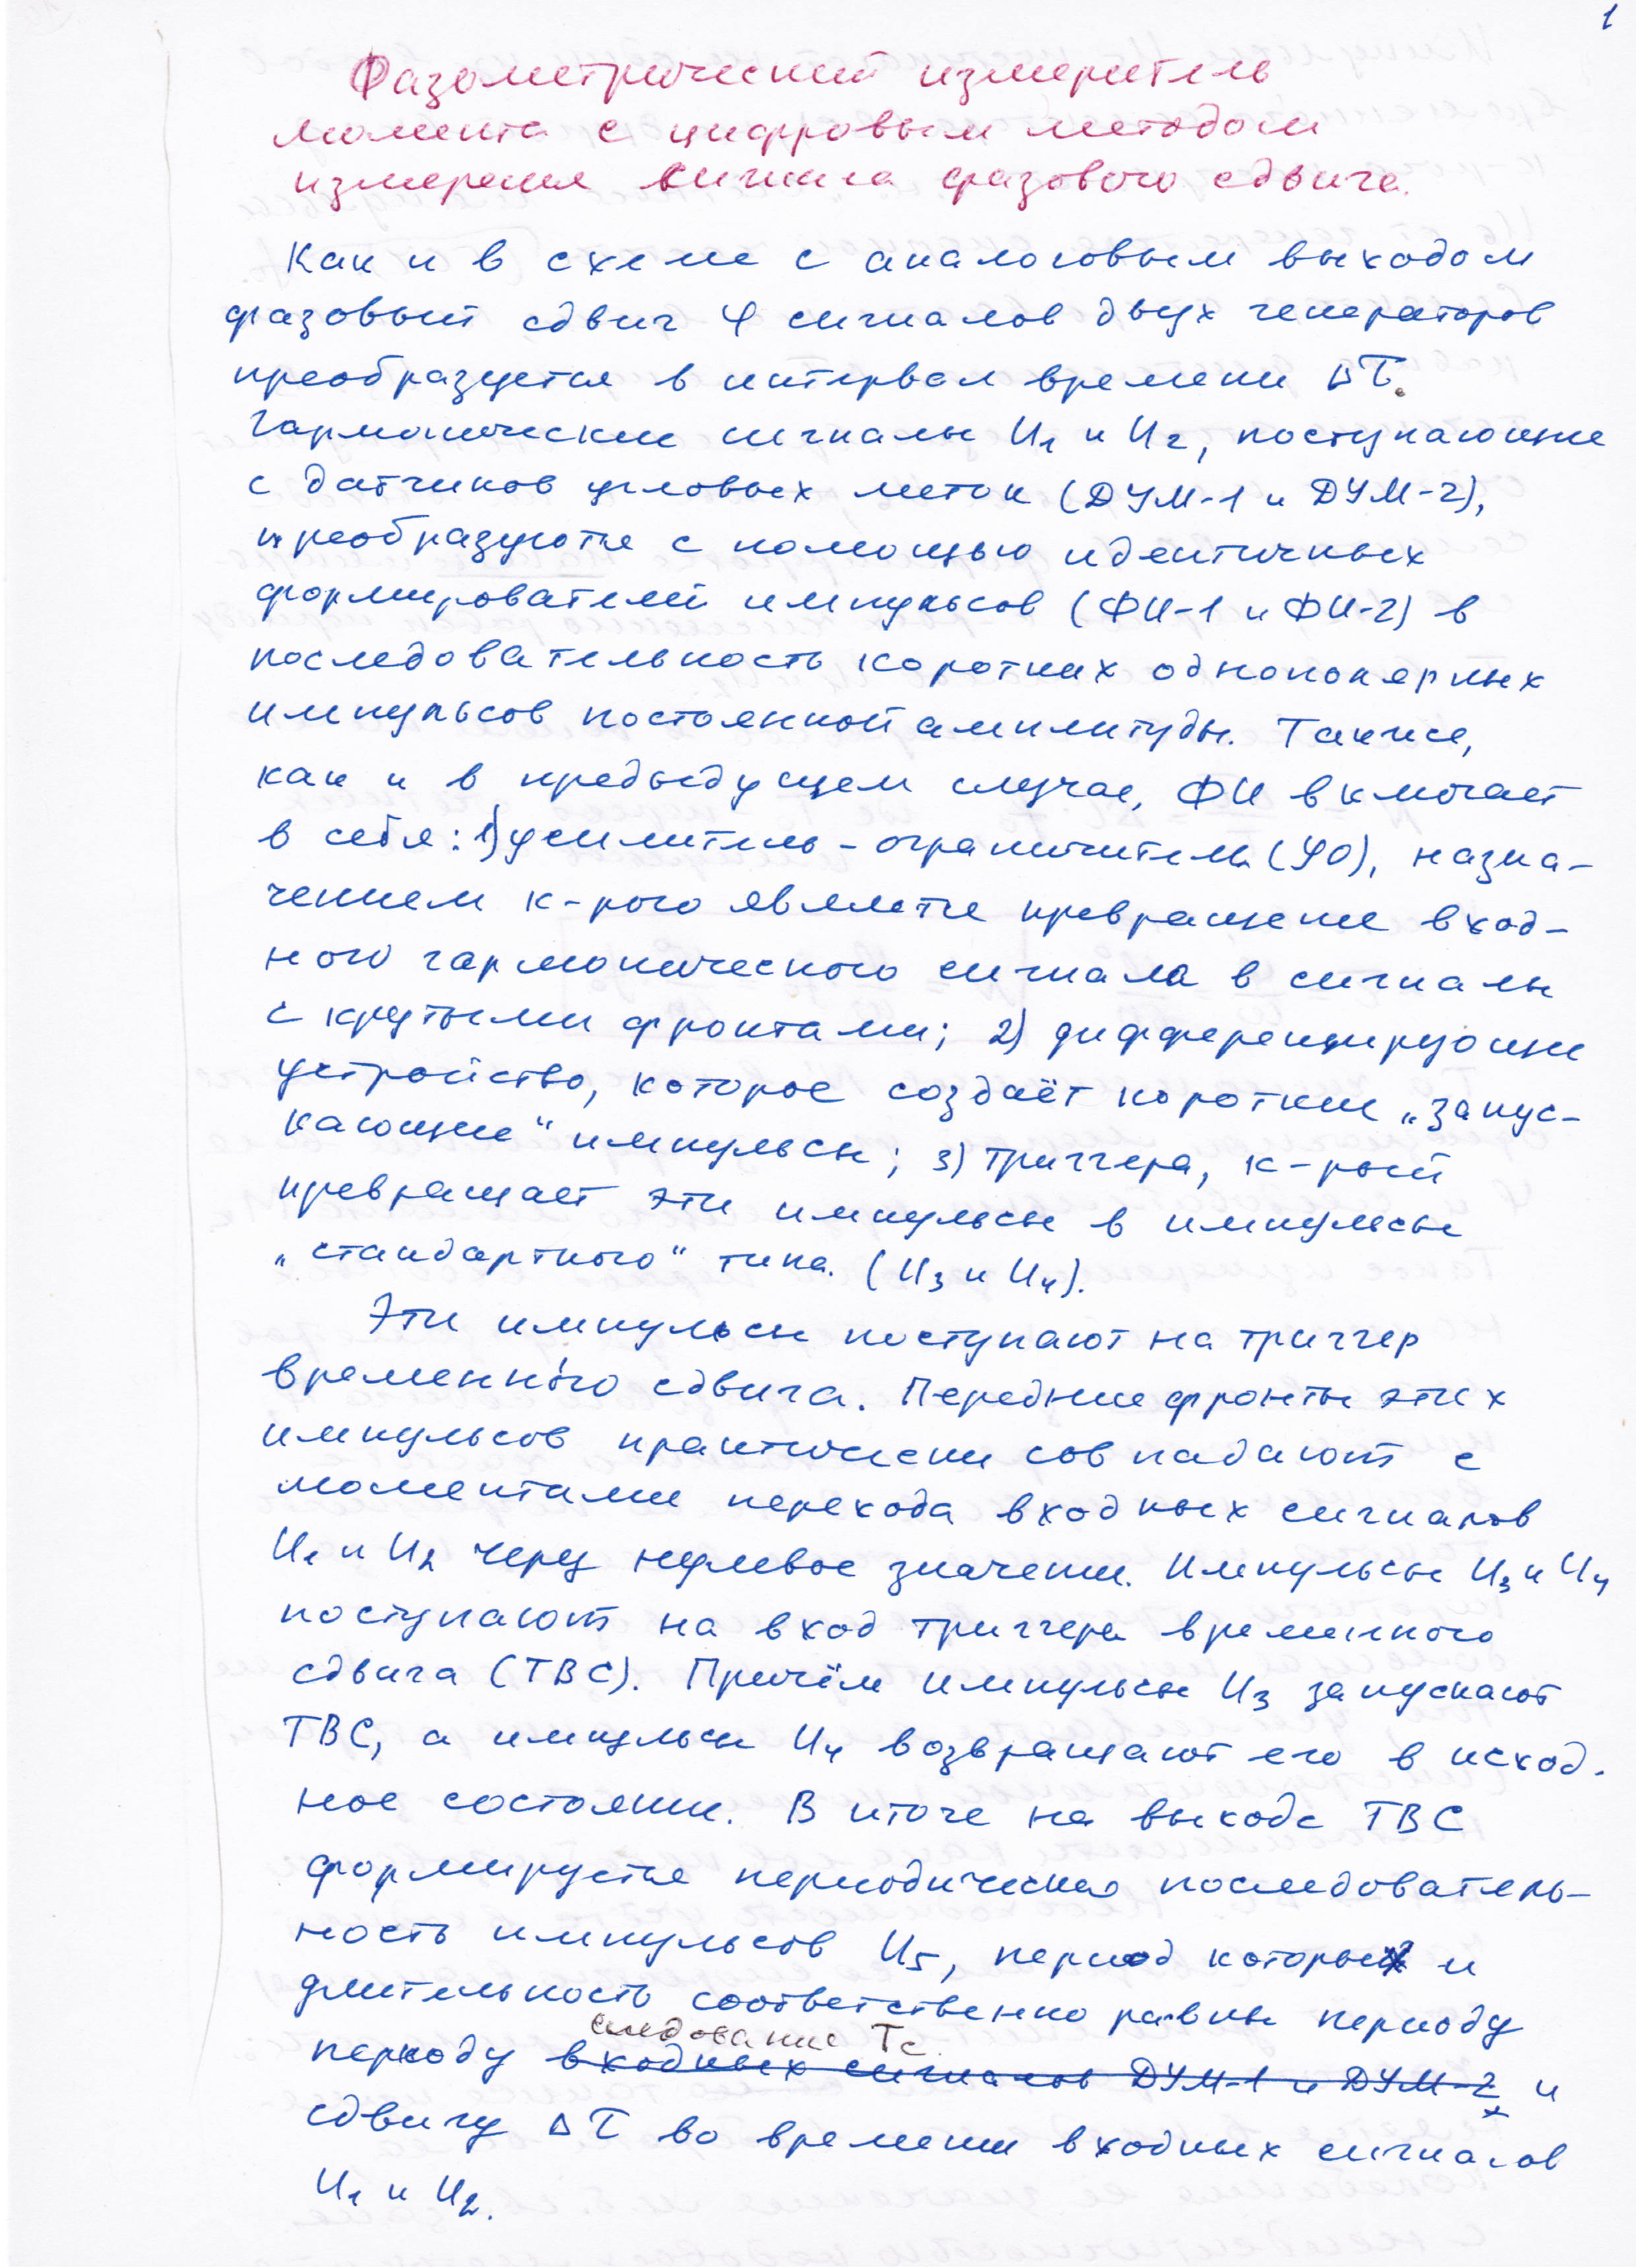 1
Фазометрический измеритель
момента с цифровым методом
измерения сигнала фазового сдвига.
Как и в схеме с аналоговым выходом
фазовый сдвиг φ сигналов двух генераторов
преобразуется в интервал времени Δτ.
Гармонические сигналы U₁ и U₂, поступающие
с датчиков угловых меток (ДУМ-1 и ДУМ-2),
преобразуются с помощью идентичных
формирователей импульсов (ФИ-1 и ФИ-2) в
последовательность коротких однополярных
импульсов постоянной амплитуды. Также,
как и в предыдущем случае, ФИ включает
в себя: 1) усилитель-ограничитель (УО), назна-
чением к-рого является превращение вход-
ного гармонического сигнала в сигналы
с крутыми фронтами; 2) дифференцирующее
устройство, которое создаёт короткие „запус-
кающие“ импульсы; 3) триггера, к-рый
превращает эти импульсы в импульсы
„стандартного“ типа. (U₃ и U₄).
Эти импульсы поступают на триггер
временно́го сдвига. Передние фронты этих
импульсов практически совпадают с
моментами перехода входных сигналов
U₁ и U₂ через нулевое значение. Импульсы U₃ и U₄
поступают на вход триггера временного
сдвига (ТВС). Причём импульсы U₃ запускают
ТВС, а импульсы U₄ возвращают его в исход-
ное состояние. В итоге на выходе ТВС
формируется периодическая последователь-
ность импульсов U₅, период которых и
длительность соответственно равны периоду
следования Tс.
периоду входных сигналов ДУМ-1 и ДУМ-2 и
сдвигу Δτ во времени входных сигналов
U₁ и U₂.